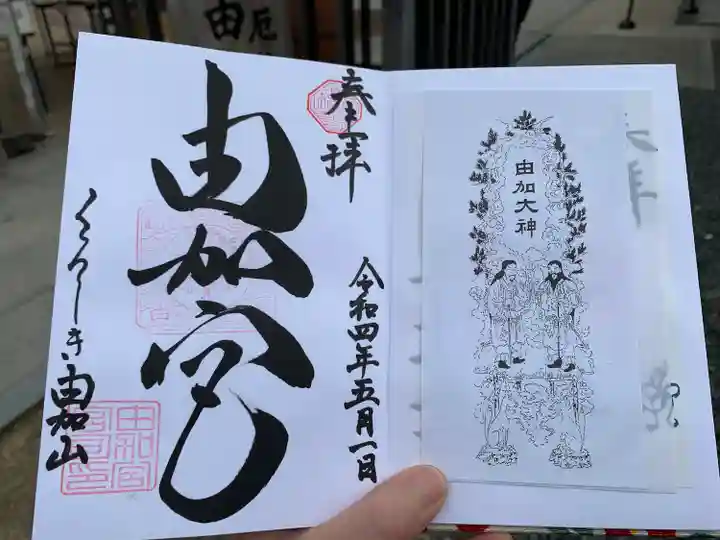 奉拝
令和四年五月一日
由加宮
くらしき由加山
由加大神
由
厄